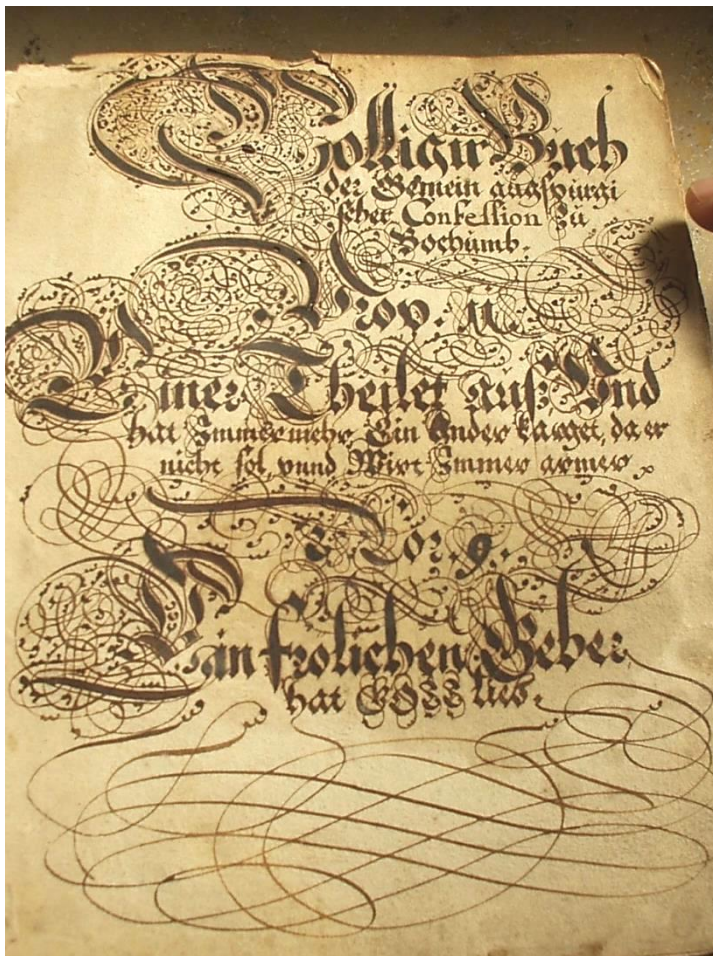 Colligir Buch
der Gemein augspurgi
scher Confession Zu
Bochumb.
Prov. 11.
Einer Theilet auß Vnd
hat Immer mehr, Ein Ander karget, da er
nicht sol, vnnd Wirt Immer armer
2 Cor. 9.
Ein frolichen Geber
hat GOTT lieb.